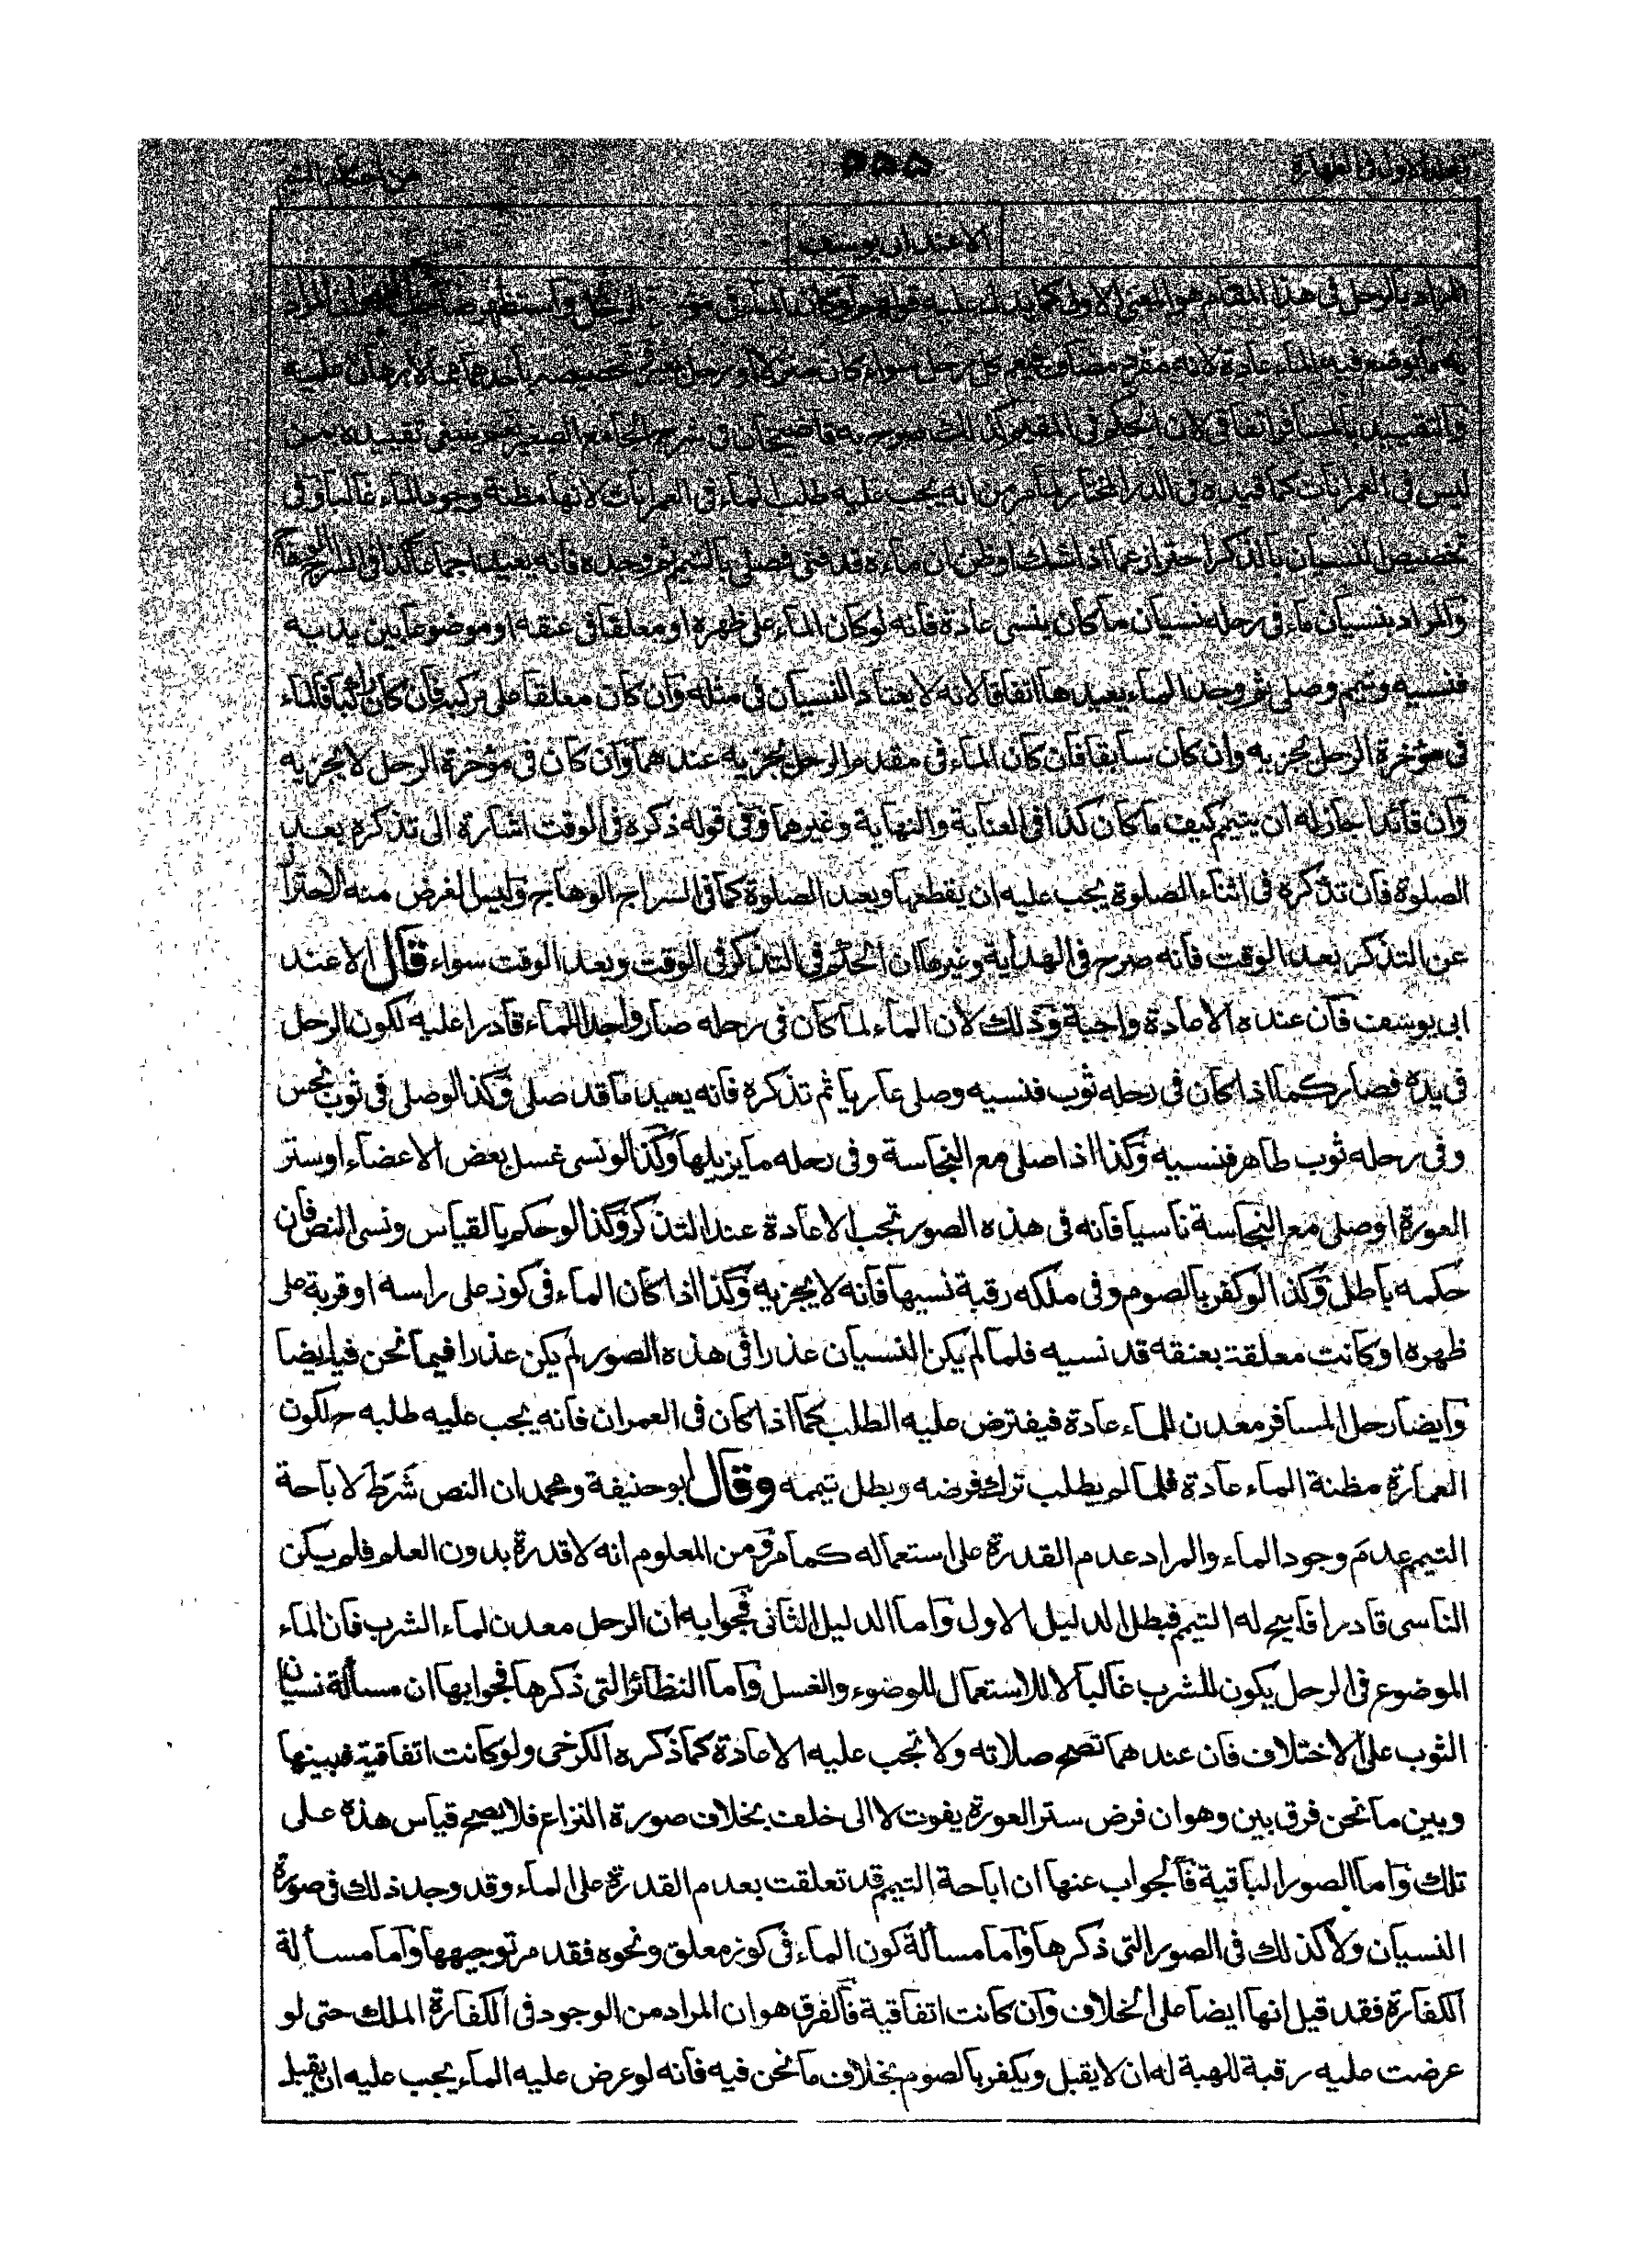 ۵۵۵
الا عند ابي يوسف
المراد بالرحل في هذا المقام هو المعنى الاول كما يدل عليه قولهم لو كان الماء في مؤخرة الرحل
به ما يوضع فيه الماء عادة لانه مفرد مضاف فيعم كل رحل سواء كان منزلا او رحل بعير
والتقييد بالمسافر اتفاقي لان الحكم في المقيم كذلك صرح به قاضيخان في شرح الجامع الصغير
ليس في العمرانات كما قيده في الدر المختار لما مر من انه يجب عليه طلب الماء في العمرانات لانها مظنة وجود الماء غالبا وفي
تخصيص النسيان بالذكر احتراز عما اذا شك او ظن ان ماءه قد فني فصلى بالتيمم ثم وجده فانه يعيد اجماعا كذا في السراج
والمراد بنسيان ماء في رحله نسيان ما كان ينسى عادة فانه لو كان الماء على ظهره او معلقا في عنقه او موضوعا بين يديه
فنسيه وتيمم وصلى ثم وجد الماء يعيدها اتفاقا لانه لا يعتاد النسيان في مثله وان كان معلقا على مركبه فان كان راكبا فالماء
في مؤخرة الرحل يجزيه وان كان سابقا فان كان الماء في مقدم الرحل يجزيه عندهما وان كان في مؤخرة الرحل لا يجزيه
وان قائدا جاز له ان يتيمم كيف ما كان كذا في العناية والنهاية وغيرهما وفي قوله ذكره في الوقت اشارة الى تذكره بعد
الصلوة فان تذكره في اثناء الصلوة يجب عليه ان يقطعها ويعيد الصلوة كما في السراج الوهاج وليس الغرض منه الاحترا
عن التذكر بعد الوقت فانه صرح في الهداية وغيرها ان الحكم في التذكر في الوقت وبعد الوقت سواء قال الا عند
ابي يوسف فان عنده الاعادة واجبة وذلك لان الماء لما كان في رحله صار واجدا للماء قادرا عليه لكون الرحل
في يده فصار كما اذا كان في رحله ثوب فنسيه وصلى عاريا ثم تذكره فانه يعيد ما قد صلى وكذا لو صلى في ثوب نجس
وفي رحله ثوب طاهر فنسيه وكذا اذا صلى مع النجاسة وفي رحله ما يزيلها وكذا لو نسي غسل بعض الاعضاء او ستر
العورة او صلى مع النجاسة ناسيا فانه في هذه الصور تجب الاعادة عند التذكر وكذا لو حكم بالقياس ونسي النص فان
حكمه باطل وكذا لو كفر بالصوم وفي ملكه رقبة نسيها فانه لا يجزيه وكذا اذا كان الماء في كوز على راسه او قربة على
ظهره او كانت معلقة بعنقه قد نسيه فلما لم يكن النسيان عذرا في هذه الصور لم يكن عذرا فيما نحن فيه ايضا
وايضا رحل المسافر معدن للماء عادة فيفترض عليه الطلب كما اذا كان في العمران فانه يجب عليه طلبه ح لكون
العمارة مظنة الماء عادة فلما لم يطلب ترك فرضه وبطل تيممه وقال ابو حنيفة ومحمد ان النص شرط لاباحة
التيمم عدم وجود الماء والمراد عدم القدرة على استعماله كما مر ومن المعلوم انه لا قدرة بدون العلم فلم يكن
الناسي قادرا فابيح له التيمم فبطل الدليل الاول واما الدليل الثاني فجوابه ان الرحل معدن لماء الشرب فان الماء
الموضوع في الرحل يكون للشرب غالبا لا للاستعمال للوضوء والغسل واما النظائر التي ذكرها فجوابها ان مسألة نسيان
الثوب على الاختلاف فان عندهما تصح صلاته ولا تجب عليه الاعادة كما ذكره الكرخي ولو كانت اتفاقية فبينها
وبين ما نحن فرق بين وهو ان فرض ستر العورة يفوت لا الى خلف بخلاف صورة النزاع فلا يصح قياس هذه على
تلك واما الصور الباقية فالجواب عنها ان اباحة التيمم قد تعلقت بعدم القدرة على الماء وقد وجد ذلك في صورة
النسيان ولا كذلك في الصور التي ذكرها واما مسألة كون الماء في كوز معلق ونحوه فقد مر توجيهها واما مسألة
الكفارة فقد قيل انها ايضا على الخلاف وان كانت اتفاقية فالفرق هو ان المراد من الوجود في الكفارة الملك حتى لو
عرضت عليه رقبة للهبة له ان لا يقبل ويكفر بالصوم بخلاف ما نحن فيه فانه لو عرض عليه الماء يجب عليه ان يقبله